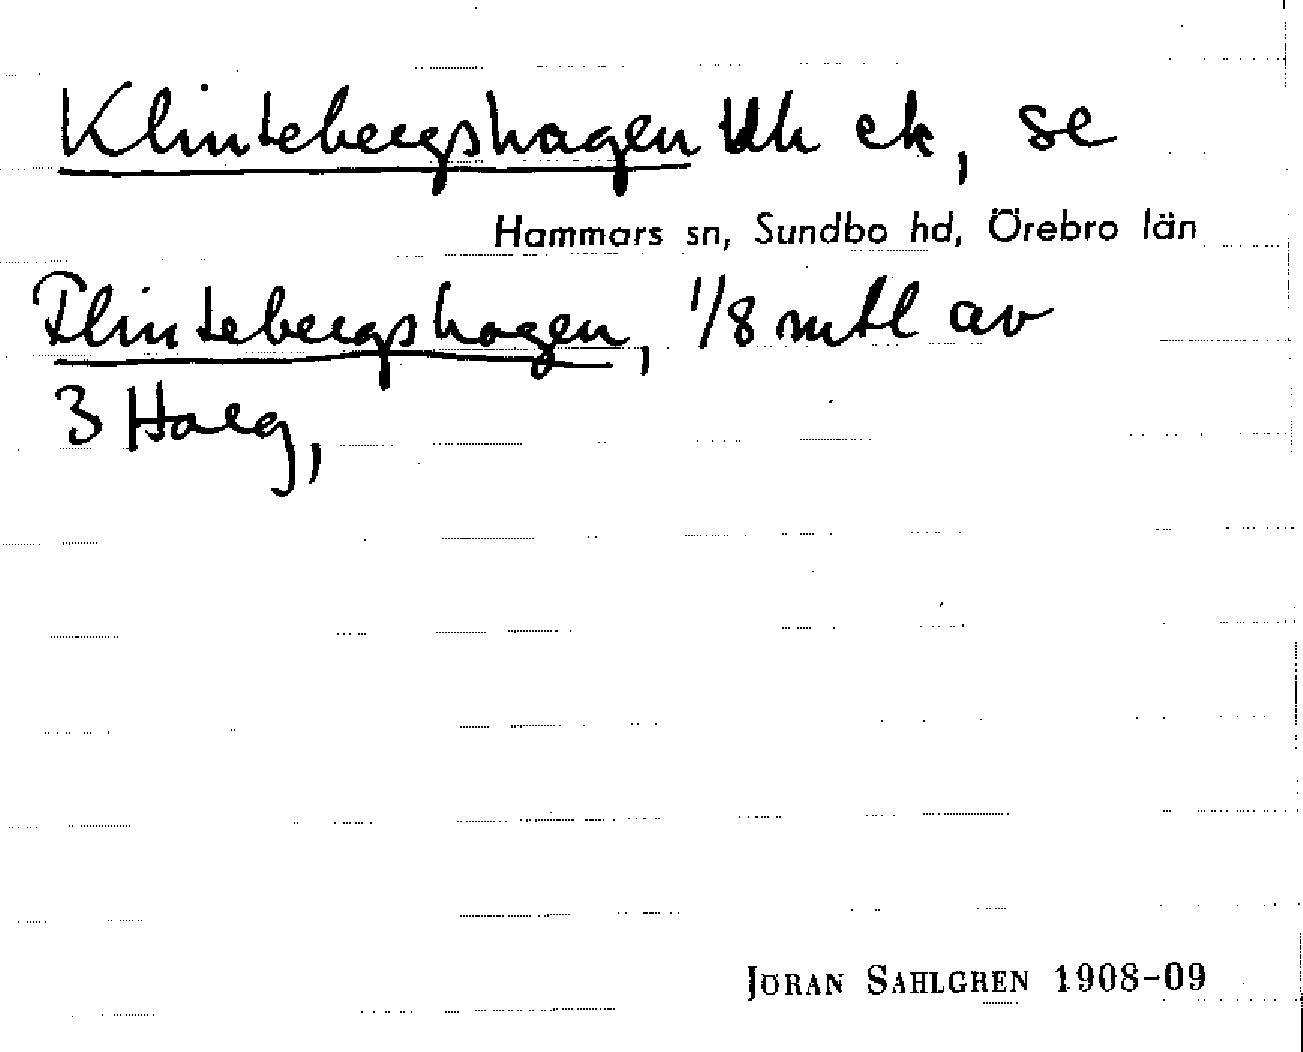 Klintebergshagen Uk ek, se
Hammars sn, Sundbo hd, Örebro län
Flintebergshagen, 1/8 mtl av
3 Harg,
JÖRAN SAHLGREN 1908-09